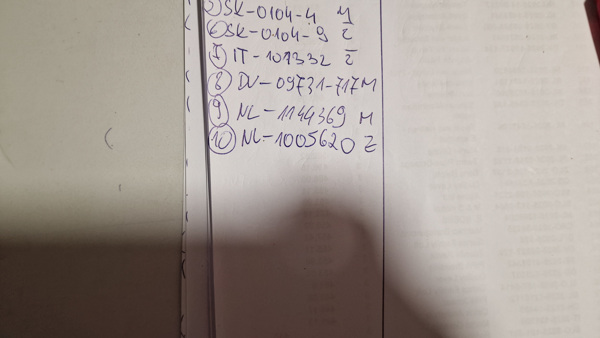 5) SK-0104-4 M
6 SK-0104-9 Ž
7 IT-101332 Ž
8 DV-09731-717 M
9 NL-1144369 M
10 NL-1005620 Z